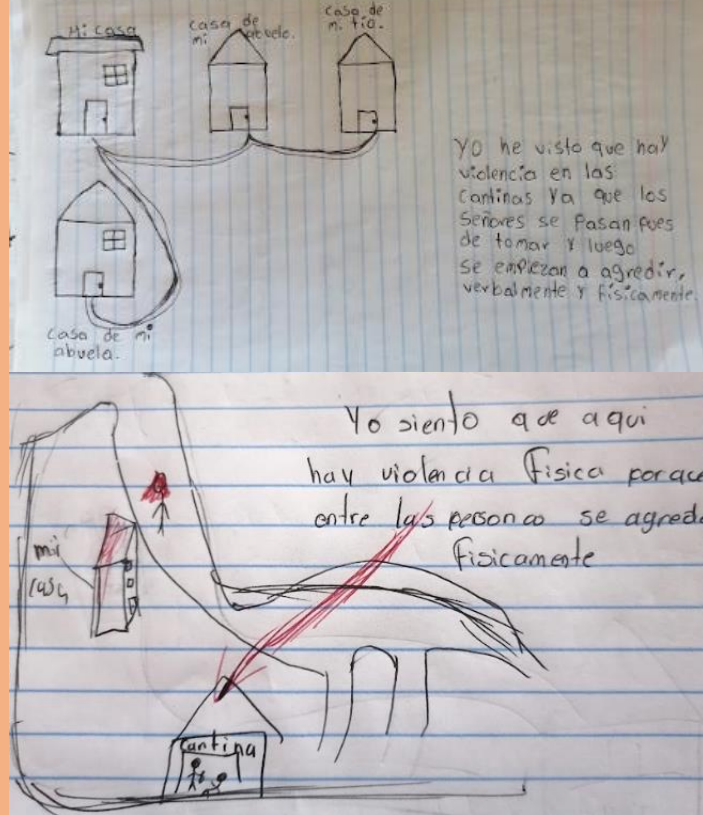 Mi casa
casa de
mi abuelo.
casa de
mi tio.
Yo he visto que hay
violencia en las
cantinas ya que los
Señores se pasan pues
de tomar y luego
se empiezan a agredir,
verbalmente y físicamente.
casa de mi
abuela.
Yo siento que aqui
hay violencia física porque
entre las personas se agrede
físicamente
mi
casa
cantina